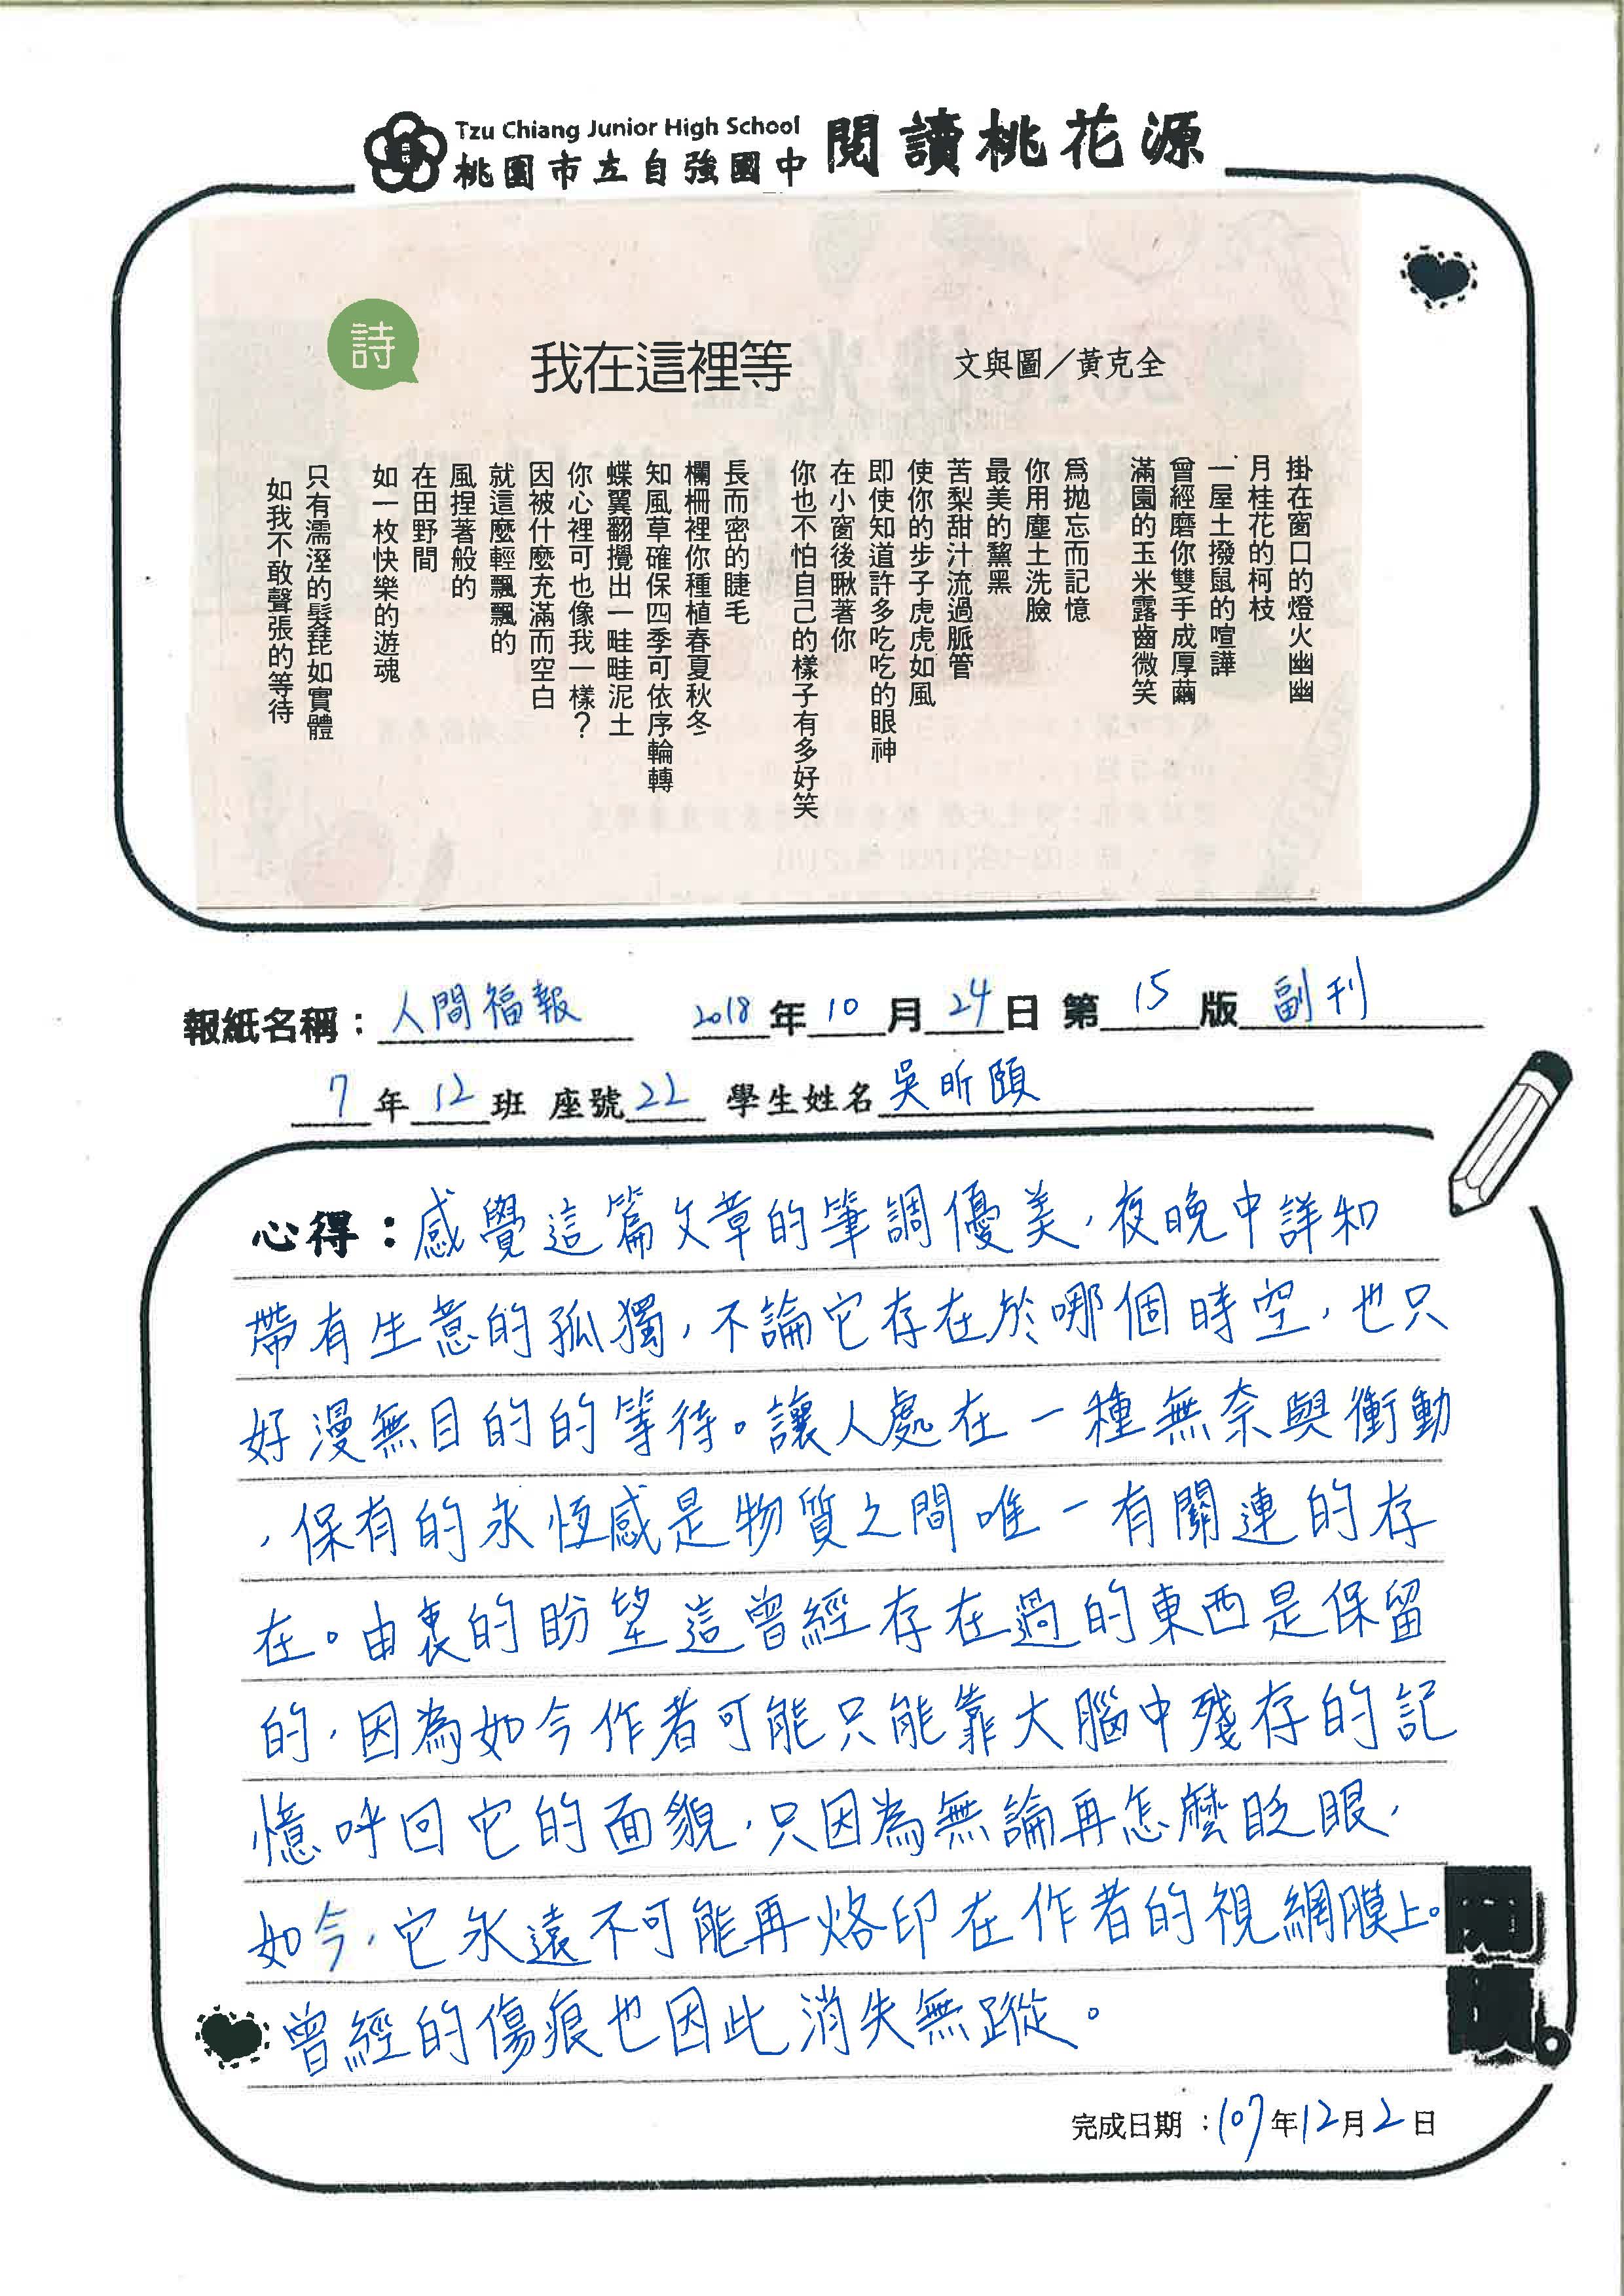 Tzu Chiang Junior High School
桃園市立自強國中
閱讀桃花源
詩
我在這裡等
文與圖／黃克全
掛在窗口的燈火幽幽
月桂花的柯枝
一屋土撥鼠的喧譁
曾經磨你雙手成厚繭
滿園的玉米露齒微笑
爲拋忘而記憶
你用塵土洗臉
最美的黧黑
苦梨甜汁流過脈管
使你的步子虎虎如風
即使知道許多吃吃的眼神
在小窗後瞅著你
你也不怕自己的樣子有多好笑
長而密的睫毛
欄柵裡你種植春夏秋冬
知風草確保四季可依序輪轉
蝶翼翻攪出一畦畦泥土
你心裡可也像我一樣？
因被什麼充滿而空白
就這麼輕飄飄的
風捏著般的
在田野間
如一枚快樂的遊魂
只有濡溼的髮茋如實體
如我不敢聲張的等待
報紙名稱：人間福報 2018年10月24日 第15版 副刊
7年12班 座號22 學生姓名吳昕頤
心得：感覺這篇文章的筆調優美，夜晚中詳和
帶有生意的孤獨，不論它存在於哪個時空，也只
好漫無目的的等待。讓人處在一種無奈與衝動
，保有的永恆感是物質之間唯一有關連的存
在。由衷的盼望這曾經存在過的東西是保留
的，因為如今作者可能只能靠大腦中殘存的記
憶呼回它的面貌，只因為無論再怎麼眨眼，
如今，它永遠不可能再烙印在作者的視網膜上。
曾經的傷痕也因此消失無蹤。
閱讀。
完成日期：107年12月2日